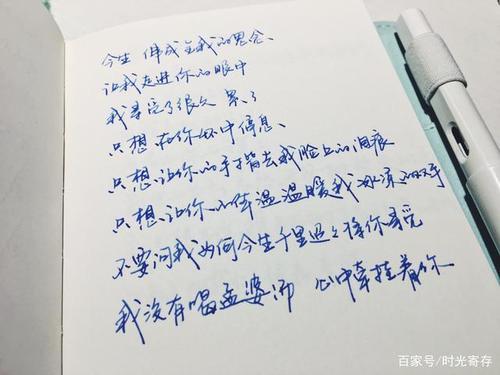 今生 你成全我的思念、
让我走进你的眼中
我寻觅了很久 累了
只想在你心中停息、
只想让你的手指揩去我脸上的泪痕
只想让你的体温温暖我冰凉的双手
不要问我为何今生千里迢迢将你寻觅
我没有喝孟婆汤 心中牵挂着你
百家号/时光寄存